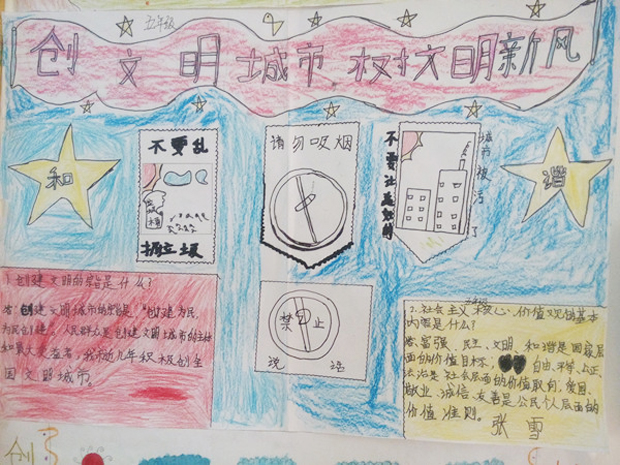 五年级
创文明城市 树文明新风
和
不要乱
扔垃圾
请勿吸烟
不要让
城市被污
了
谐
1.创建文明的宗旨是什么?
答:创建文明城市的宗旨是,"创建为民,
为民创建",人民群众是创建文明城市的主体
和最大受益者,我市近几年积极创全
国文明城市。
禁止
说话
2.社会主义核心价值观的基本
内容是什么?
答:富强、民主、文明、和谐是国家层
面的价值目标,自由、平等、公正、
法治是社会层面的价值取向,爱国、
敬业、诚信、友善是公民个人层面的
价值准则。
张雪
创